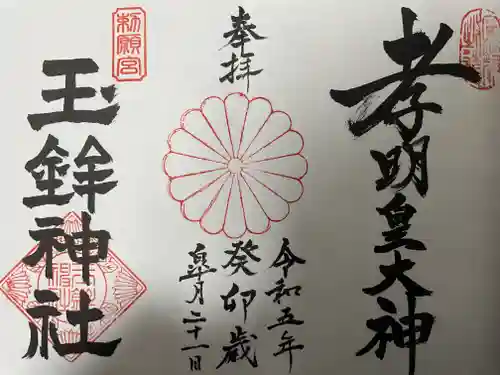 孝明皇大神
奉拝
令和五年
癸卯歳
皐月二十一日
勅願宮
玉鉾神社